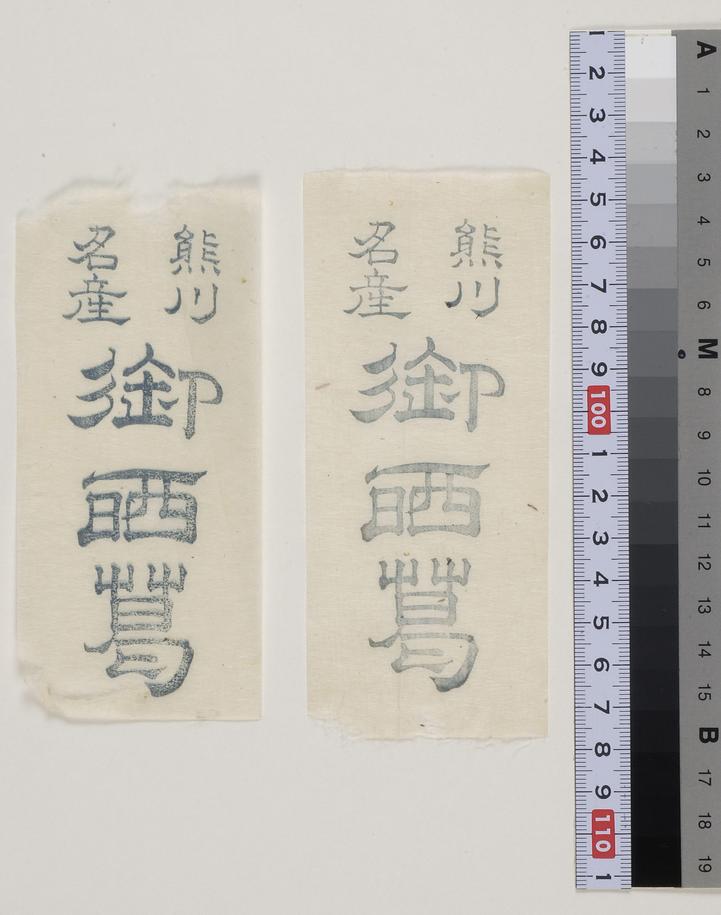 熊川
名産
御晒葛
熊川
名産
御晒葛
1
2
3
4
5
6
7
8
9
100
1
2
3
4
5
6
7
8
9
110
1
A
1
2
3
4
5
6
M
8
9
10
11
12
13
14
15
B
17
18
19